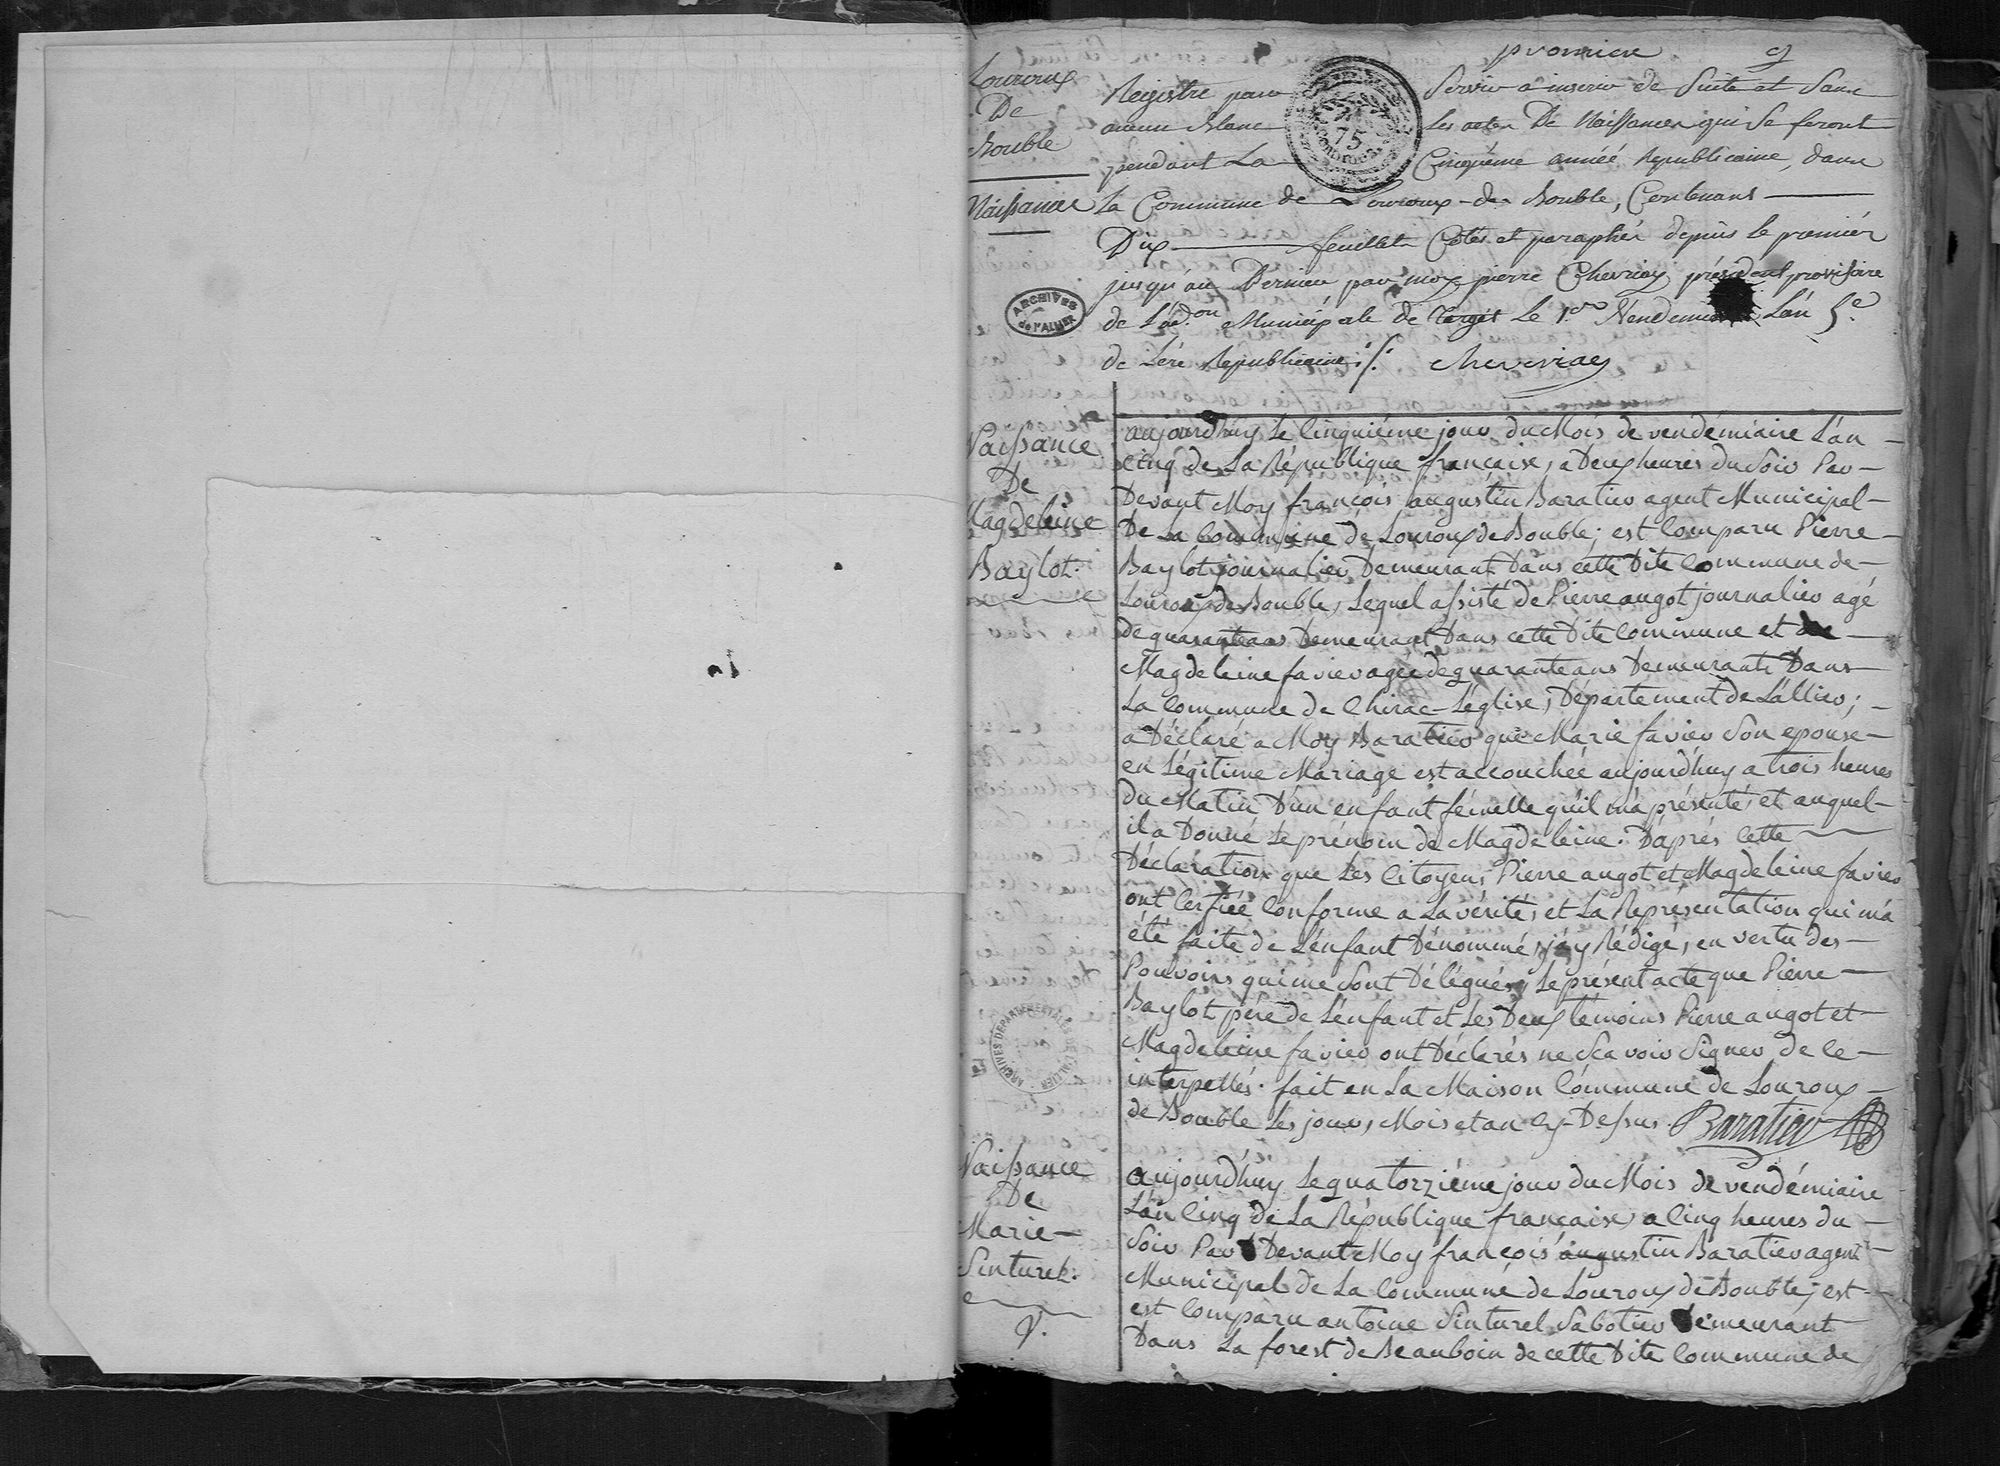 premiere
Louroux
De
Bouble
Naissances
Registre pour Servir a inserer de Suite et Sans
aucun Blanc Les actes De Naissances qui Se feront
pendant La Cinquième année Republicaine, dans
La Commune de Louroux-de Bouble, Contenans
Dix feuillets Cotés et paraphés depuis le premier
jusqu'au Dernier par moy pierre Chevrier président provisoire
de L'ad.on Municipale de Target Le 1.er Vendemiaire L'an 5.e
de L'ère Republicaine ./.
ARCHIVES
de l'ALLIER
75
Naissance
De
Magdeleine
Baylot.
aujourd'huy Le Cinquiéme jour du Mois de vendémiaire L'an
Cinq de La République française, a Deux heures du Soir Par
Devant Moy françois augustin Baratier agent Municipal
De La Commune de Louroux de Bouble; est Comparu Pierre
Baylot journalier Demeurant Dans cette Dite Commune de
Louroux de Bouble, Lequel assisté de Pierre augot journalier agé
de quarante ans Demeurant Dans cette Dite Commune et de
Magdeleine favier agée de quarante ans Demeurante Dans
La Commune de Chirac-L'église, Département de L'allier;
a Déclaré a Moy Baratier que Marie favier Son epouse
en Légitime Mariage est accouchée aujourd'huy a trois heures
du Matin D'un enfant fémelle qu'il m'a présenté, et auquel
il a Donné Le prénom de Magdeleine. D'aprés Cette
Déclaration que Les Citoyens Pierre augot et Magdeleine favier
ont Cerfiéé Conforme a La vérité, et La Représentation qui m'a
été faite de L'enfant Dénommé, j'ay Rédigé, en vertu des
Pouvoirs qui me Sont Délégués, Le présent acte que Pierre
Baylot pére de L'enfant et Les Deux témoins Pierre augot et
Magdeleine favier ont Déclarés ne Scavoir Signer, de Ce
interpellés. fait en La Maison Commune de Louroux
de Bouble Les jour, Mois et an Cy-Dessus. Baratier
ARCHIVES DEPARTEMENTALES DE L'ALLIER
Naissance
De
Marie
Sinturel.
aujourd'huy Le quatorziéme jour du Mois de vendémiaire
L'an Cinq de La République française, a Cinq heures du
Soir Par Devant Moy françois augustin Baratier agent
Municipal de La Commune de Louroux de Bouble; est
est Comparu antoine Sinturel Sabotier Demeurant
Dans La forest de Beauboin de cette Dite Commune de